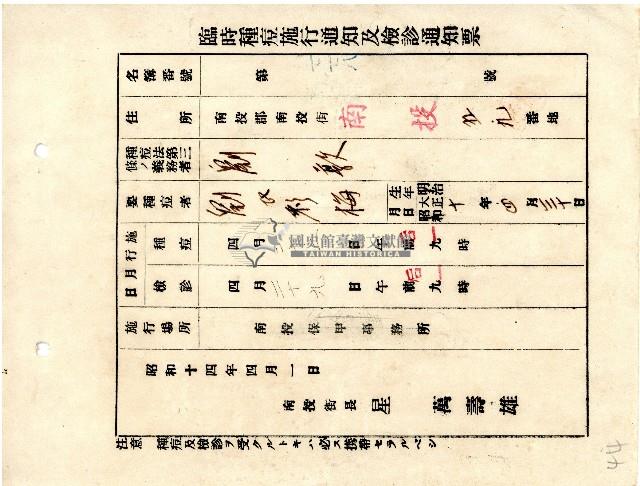 臨時種痘施行通知及檢診通知票
名簿番號 第 號
住所 南投郡南投街 南投 番地
種痘法第三條ノ義務者 劉
要種痘者 劉 梅 明治大正昭和 十年四月三十日生年月日
施行月日 種痘 四月 日午前 后 九時 一
檢診 四月二十九日午前 后 九時 一
施行場所 南投保甲事務所
昭和十四年四月一日
南投街長 星 萬壽雄
注意 種痘及檢診ヲ受クルトキハ必ス携帶セラルベシ
國史館臺灣文獻館
TAIWAN HISTORICA
44